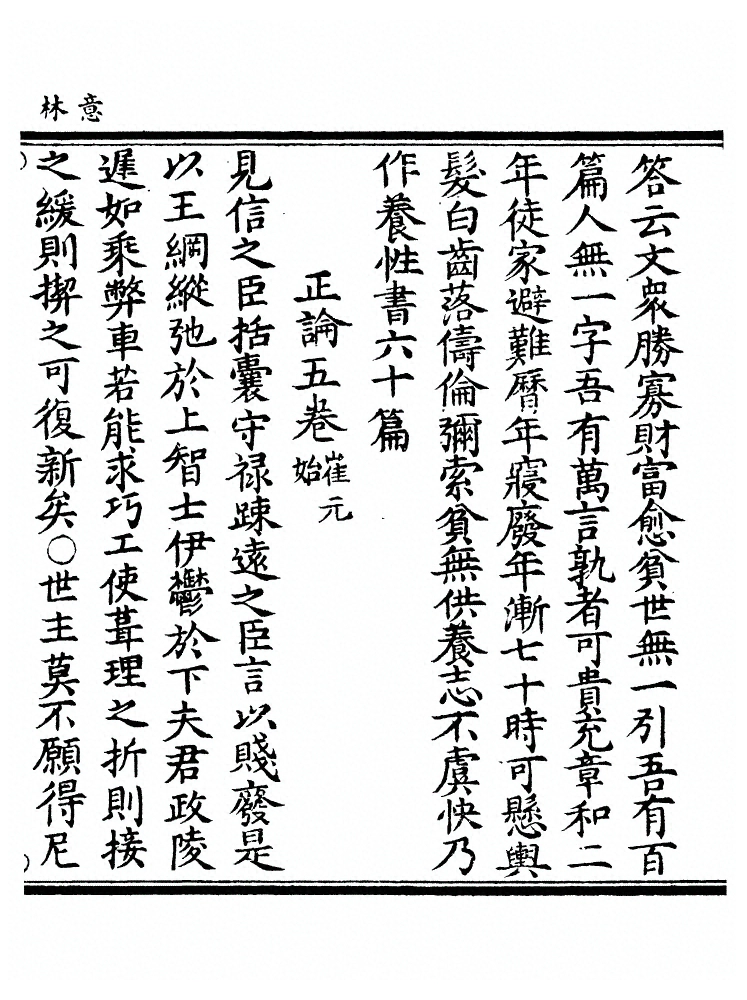 意林
答云文衆勝寡財富愈貧世無一引吾有百
篇人無一字吾有萬言孰者可貴充章和二
年徙家避難曆年寢廢年漸七十時可懸輿
髮白齒落儔倫彌索貧無供養志不虞快乃
作養性書六十篇
正論五卷崔元始
見信之臣括囊守祿踈遠之臣言以賤廢是
以王綱縱弛於上智士伊鬱於下夫君政陵
遲如乘弊車若能求巧工使葺理之折則接
之緩則揳之可復新矣○世主莫不願得尼